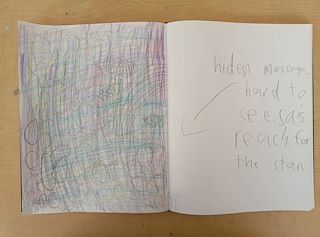 hiden message.
hard to
see. says
reach for
the stars